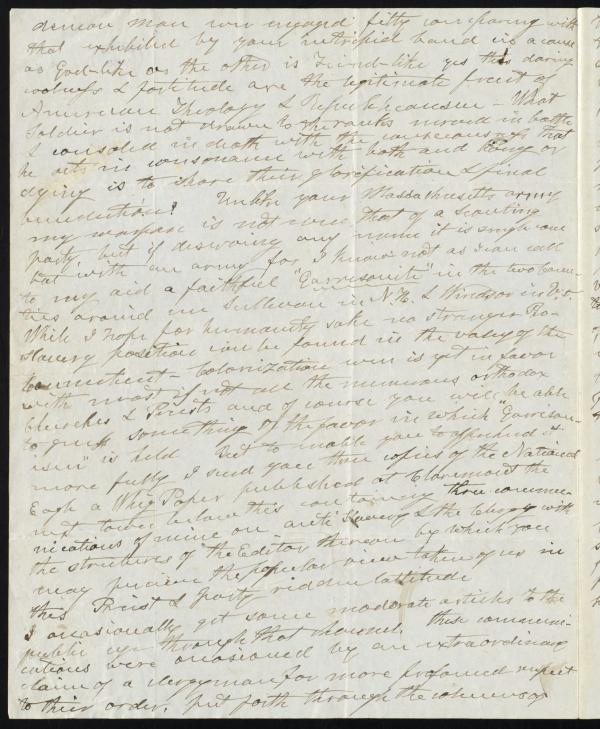 demon man ever engaged fitly comparing with
that exhibited by your intrepid band in a cause
as God-like as the other is Fiend-like yes this daring
coolness & fortitude are the legitimate fruit of
American Theology & Republicanism - What
Soldier is not drawn to the ranks nerved in battle
& consoled in death with the consciousness that
he acts in consonance with both and living or
dying is to share their glorification & final
benediction! Unlike your Massachusetts army
my warfare is not even that of a scouting
party, but if deserving any name it is single one
but with an army for I know not as I can call
to my aid a faithful "Garrisonite" in the two Coun-
ties around me Sullivan in N.H. & Windsor in Vt.
While I hope for humanity sake no stronger Pro-
Slavery position can be found in the valley of the
Connecticut - Colonization even is yet in favor
with most if not all the numerous orthodox
Churches & Priests and of course you will be able
to guess something of the favor in which "Garrison-
ism" is held But to enable you to apprehend it
more fully I send you three copies of the National
Eagle a Whig Paper published at Claremont the
next town below this containing three commu-
nications of mine on anti Slavery & the Clergy with
the strictures of the Editor thereon by which you
may perceive the popular view taken of us in
this Priest & party ridden lattitude
I occasionally get some moderate articles to the
public eye through that channel. These communi-
cations were occasioned by an extraordinary
claim of a clergyman for more profound respect
to their order. put forth through the columns of